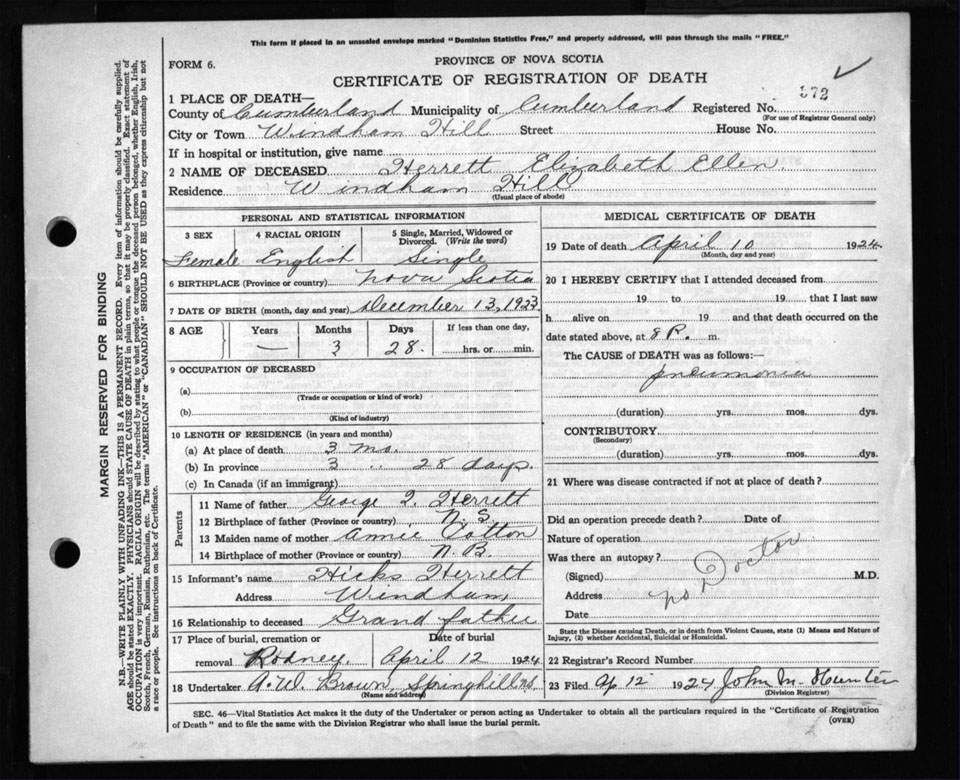 This form if placed in an unsealed envelope marked "Dominion Statistics Free," and properly addressed, will pass through the mails "FREE."
FORM 6.
PROVINCE OF NOVA SCOTIA
CERTIFICATE OF REGISTRATION OF DEATH
1 PLACE OF DEATH—
County of Cumberland Municipality of Cumberland Registered No. 372
(For use of Registrar General only)
City or Town Windham Hill Street House No.
If in hospital or institution, give name
2 NAME OF DECEASED Herrett Elizabeth Ellen
Residence Windham Hill
(Usual place of abode)
PERSONAL AND STATISTICAL INFORMATION
3 SEX 4 RACIAL ORIGIN 5 Single, Married, Widowed or Divorced. (Write the word)
Female English Single
6 BIRTHPLACE (Province or country) Nova Scotia
7 DATE OF BIRTH (month, day and year) December 13, 1923
8 AGE Years Months Days If less than one day,
— 3 28. hrs. or min.
9 OCCUPATION OF DECEASED
(a)
(Trade or occupation or kind of work)
(b)
(Kind of industry)
10 LENGTH OF RESIDENCE (in years and months)
(a) At place of death 3 mo.
(b) In province 3 " 28 days.
(c) In Canada (if an immigrant)
Parents
11 Name of father George Herrett
12 Birthplace of father (Province or country) N. S.
13 Maiden name of mother Annie
14 Birthplace of mother (Province or country) N. B.
15 Informant's name Hicks Herrett
Address Windham,
16 Relationship to deceased Grand father
17 Place of burial, cremation or removal Rodney. Date of burial April 12 1924
18 Undertaker A. W. Brown, Springhill N.S.
(Name and address)
MEDICAL CERTIFICATE OF DEATH
19 Date of death April 10 1924.
(Month, day and year)
20 I HEREBY CERTIFY that I attended deceased from
19 to 19 that I last saw
h alive on 19 and that death occurred on the
date stated above, at 8 P. m.
The CAUSE of DEATH was as follows:—
pneumonia
(duration) yrs. mos. dys.
CONTRIBUTORY
(Secondary)
(duration) yrs. mos. dys.
21 Where was disease contracted if not at place of death?
Did an operation precede death? Date of
Nature of operation
Was there an autopsy?
(Signed) M.D.
no Doctor
Address
Date
State the Disease causing Death, or in death from Violent Causes, state (1) Means and Nature of Injury, (2) whether Accidental, Suicidal or Homicidal.
22 Registrar's Record Number
23 Filed Ap 12 1924 John M. Hunter
(Division Registrar)
SEC. 46—Vital Statistics Act makes it the duty of the Undertaker or person acting as Undertaker to obtain all the particulars required in the "Certificate of Registration
of Death" and to file the same with the Division Registrar who shall issue the burial permit. (OVER)
MARGIN RESERVED FOR BINDING
N.B.—WRITE PLAINLY WITH UNFADING INK—THIS IS A PERMANENT RECORD. Every item of information should be carefully supplied.
AGE should be stated EXACTLY. PHYSICIANS should STATE CAUSE OF DEATH in plain terms, so that it may be properly classified. Exact statement of
OCCUPATION is very important. RACIAL ORIGIN will be described by stating to what people or tongue the deceased person belonged, whether English, Irish,
Scotch, French, German, Russian, Ruthenian, etc. The terms "AMERICAN" or "CANADIAN" SHOULD NOT BE USED as they express citizenship but not
a race or people. See instructions on back of Certificate.